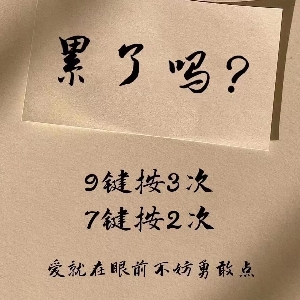 累了吗?
9键按3次
7键按2次
爱就在眼前不妨勇敢点